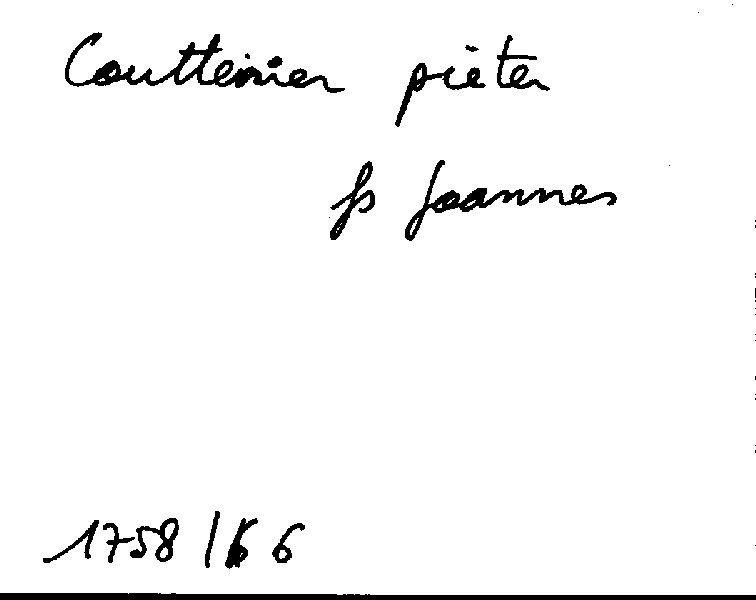 Couttenier pieter
fs Joannes
1758/66